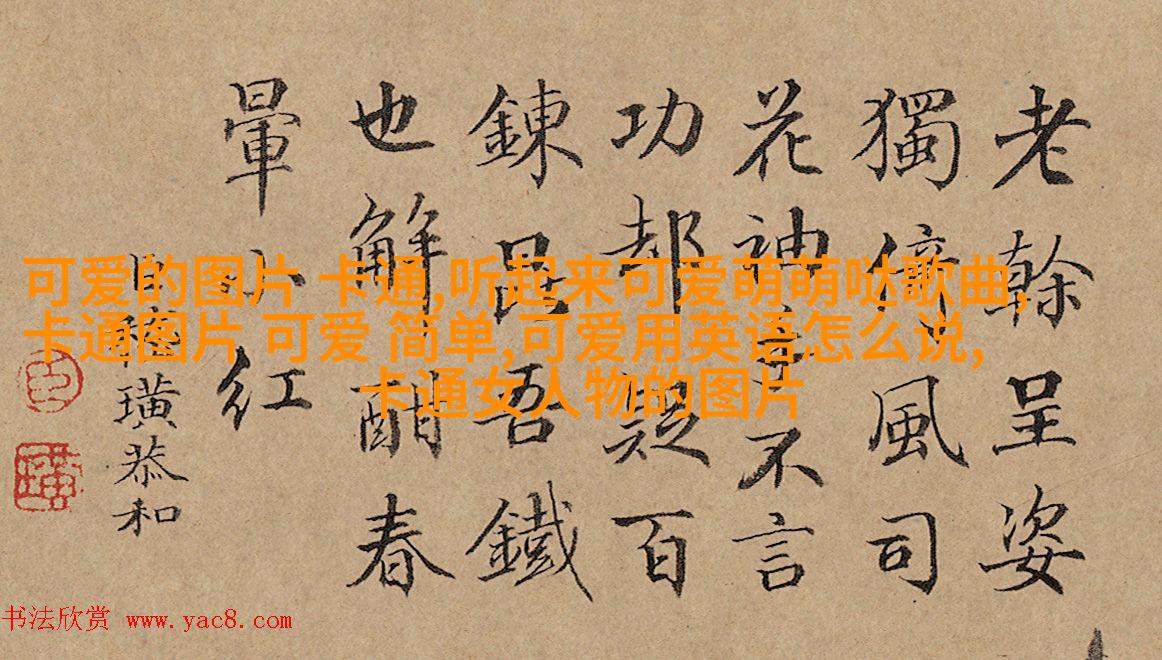 老榦呈姿
獨倚風司
花神不言
功却疑百
鍊昆吾鐵
也解酣春
暈小紅
臣嵇璜恭和
臣
璜
可爱的图片 卡通,听起来可爱萌萌哒歌曲,
卡通图片 可爱 简单,可爱用英语怎么说,
卡通女人物的图片
书法欣赏 www.yac8.com